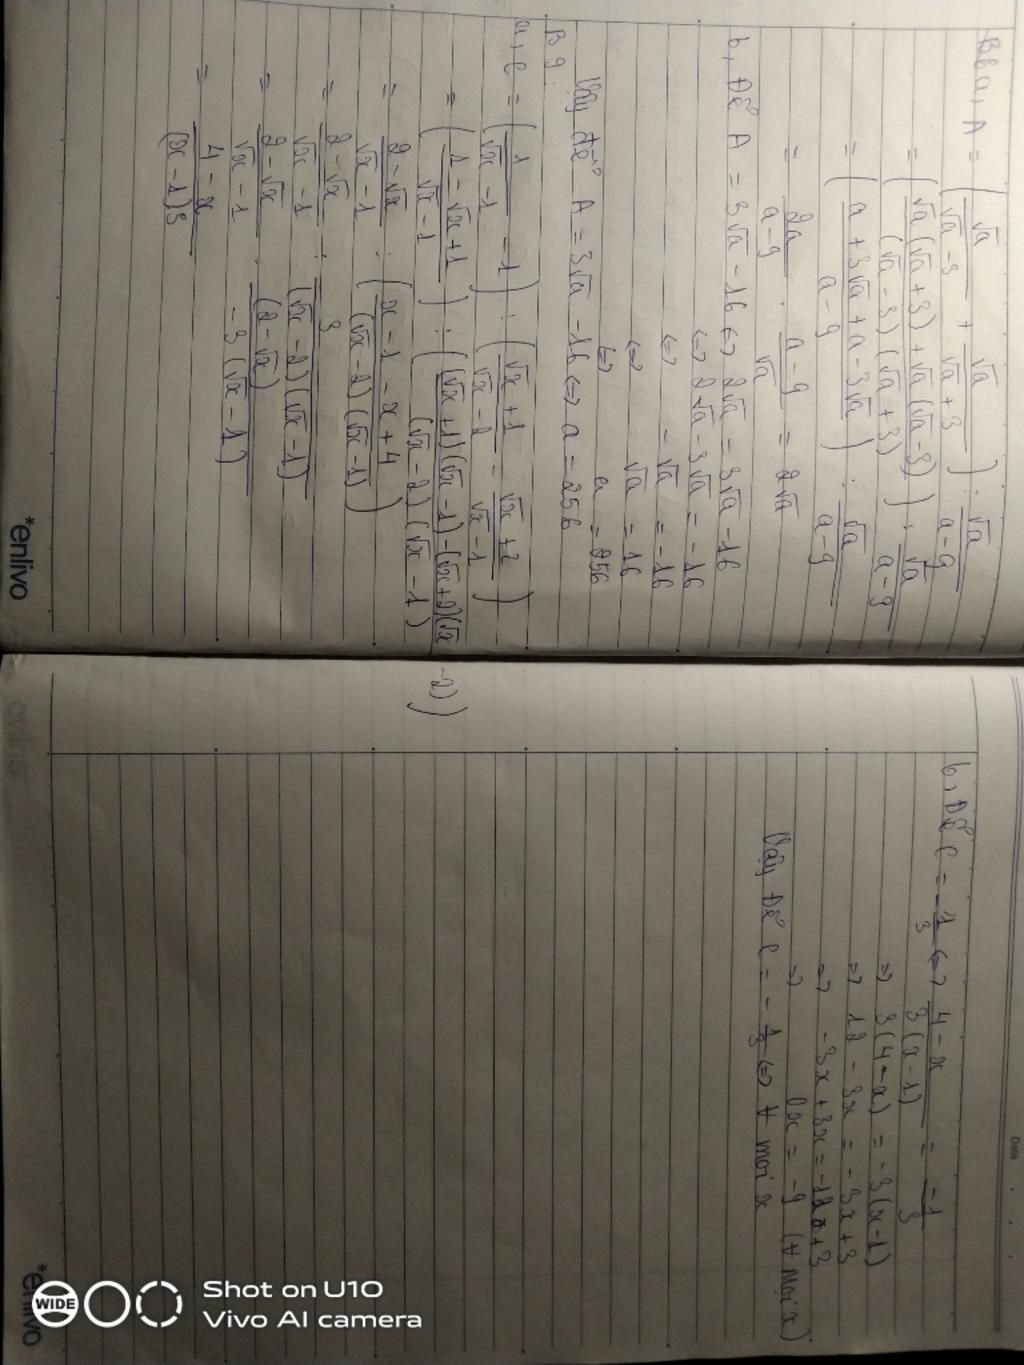 B8a, A = (√a/(√a-3) + √a/(√a+3)) : √a/(a-9)
= (√a(√a+3) + √a(√a-3))/((√a-3)(√a+3)) : √a/(a-9)
= (a+3√a+a-3√a)/(a-9) : √a/(a-9)
= 2a/(a-9) . (a-9)/√a = 2√a
b, Để A = 3√a - 16 <=> 2√a = 3√a - 16
<=> 2√a - 3√a = -16
<=> -√a = -16
<=> √a = 16
<=> a = 256
Vậy để A = 3√a - 16 <=> a = 256
B 9:
a, C = (1/(√x-1) - 1) : ((√x+1)/(√x-2) - (√x+2)/(√x-1))
= ((1-√x+1)/(√x-1)) : (((√x+1)(√x-1)-(√x+2)(√x-2))/((√x-2)(√x-1)))
= (2-√x)/(√x-1) : ((x-1-x+4)/((√x-2)(√x-1)))
= (2-√x)/(√x-1) : 3/((√x-2)(√x-1))
= (2-√x)/(√x-1) . (2-√x)/(-3(√x-1))
= (4-x)/((x-1)3)
b, Để C = -1/3 <=> (4-x)/(3(x-1)) = -1/3
=> 3(4-x) = -3(x-1)
=> 12 - 3x = -3x + 3
=> -3x + 3x = -12 + 3
=> 0x = -9 (∀ mọi x)
Vậy Để C = -1/3 <=> ∀ mọi x
*enlivo
Date
*enlivo
WIDE
Shot on U10
Vivo AI camera